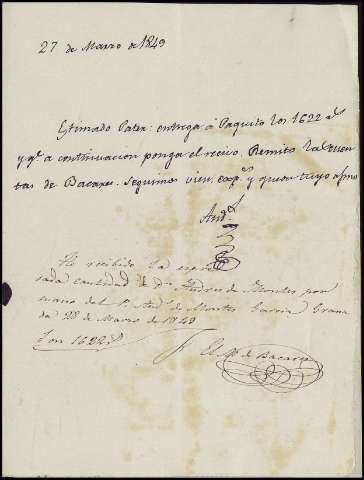 27 de Marzo de 1849
Estimado Pater: entrega á Paquito los 1622 rs
y qe. a continuacion ponga el recivo. Remito las cuen
tas de Bacares. Seguimos vien, y tuyo afmo
Ands.
He recibido la espre
sada cantidad de Dn. Andres de Montes por
mano del Sr. Anto. de Montes Garcia Grana
da 28 de Marzo de 1849
Son 1622 rs
El Ms. de Bacares